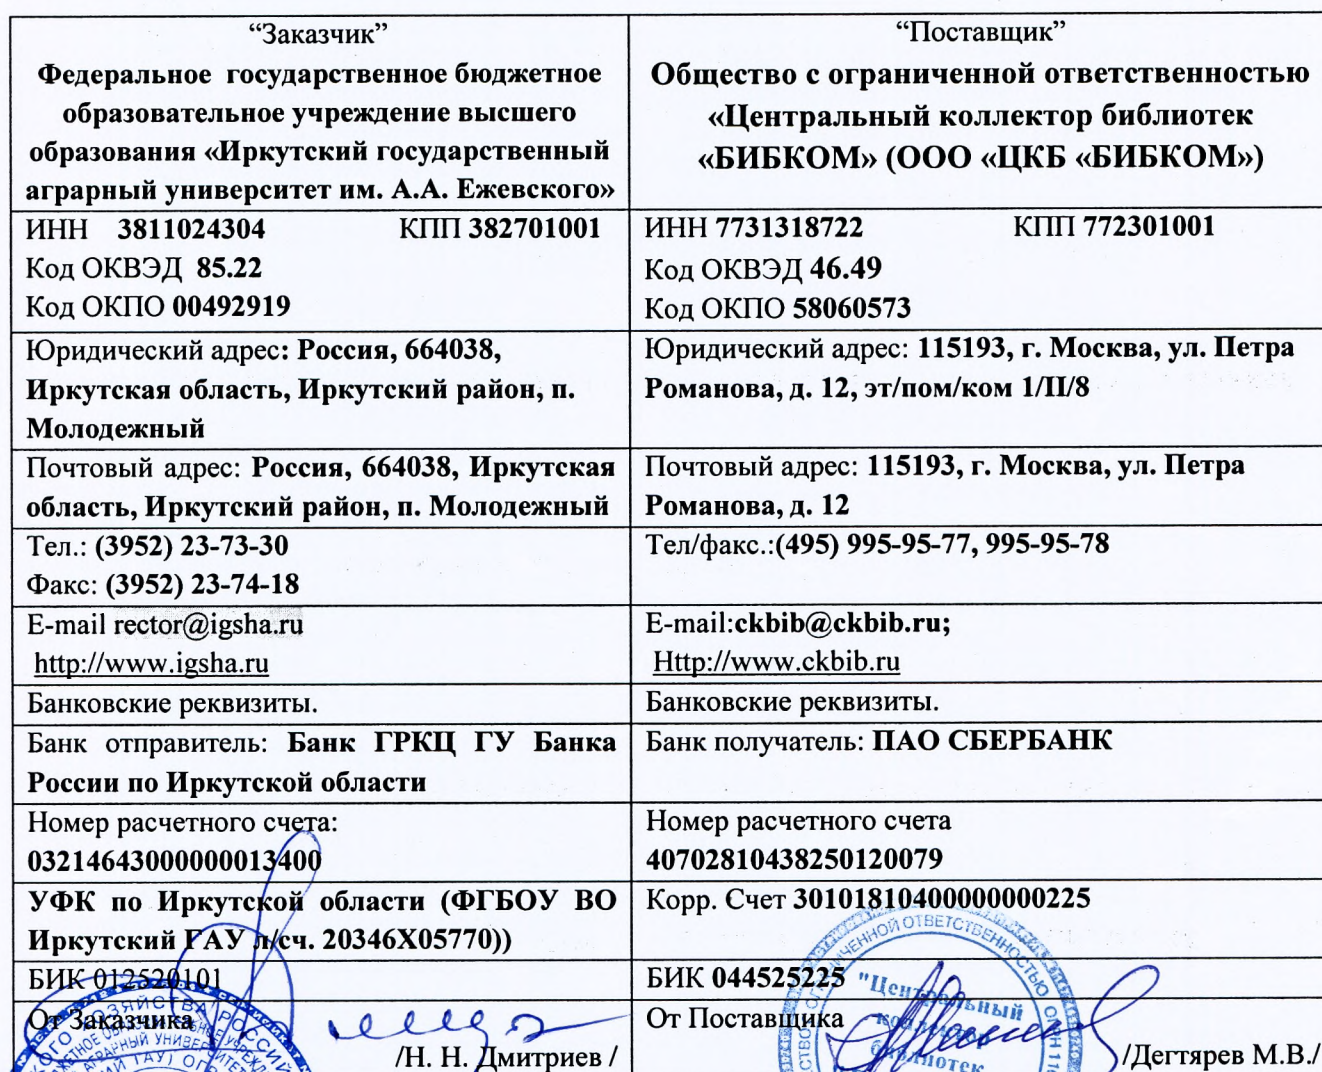 “Заказчик”
Федеральное государственное бюджетное
образовательное учреждение высшего
образования «Иркутский государственный
аграрный университет им. А.А. Ежевского»
“Поставщик”
Общество с ограниченной ответственностью
«Центральный коллектор библиотек
«БИБКОМ» (ООО «ЦКБ «БИБКОМ»)
ИНН 3811024304 КПП 382701001
Код ОКВЭД 85.22
Код ОКПО 00492919
ИНН 7731318722 КПП 772301001
Код ОКВЭД 46.49
Код ОКПО 58060573
Юридический адрес: Россия, 664038,
Иркутская область, Иркутский район, п.
Молодежный
Юридический адрес: 115193, г. Москва, ул. Петра
Романова, д. 12, эт/пом/ком 1/II/8
Почтовый адрес: Россия, 664038, Иркутская
область, Иркутский район, п. Молодежный
Почтовый адрес: 115193, г. Москва, ул. Петра
Романова, д. 12
Тел.: (3952) 23-73-30
Факс: (3952) 23-74-18
Тел/факс.:(495) 995-95-77, 995-95-78
E-mail rector@igsha.ru
http://www.igsha.ru
E-mail:ckbib@ckbib.ru;
Http://www.ckbib.ru
Банковские реквизиты.
Банковские реквизиты.
Банк отправитель: Банк ГРКЦ ГУ Банка
России по Иркутской области
Банк получатель: ПАО СБЕРБАНК
Номер расчетного счета:
03214643000000013400
Номер расчетного счета
40702810438250120079
УФК по Иркутской области (ФГБОУ ВО
Иркутский ГАУ л/сч. 20346Х05770))
Корр. Счет 30101810400000000225
БИК 012520101
БИК 044525225
От Заказчика
/Н. Н. Дмитриев /
От Поставщика
/Дегтярев М.В./
"Центральный
коллектор
библиотек